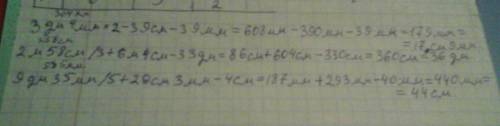 304мм
3дм 4мм*2-39см-39мм=608мм-390мм-39мм=179мм=
258см =17см 9мм
2м 58см/3+6м 4см-33дм=86см+604см-330см=360см=36дм
935мм
9дм 35мм/5+29см 3мм-4см=187мм+293мм-40мм=440мм=
=44см